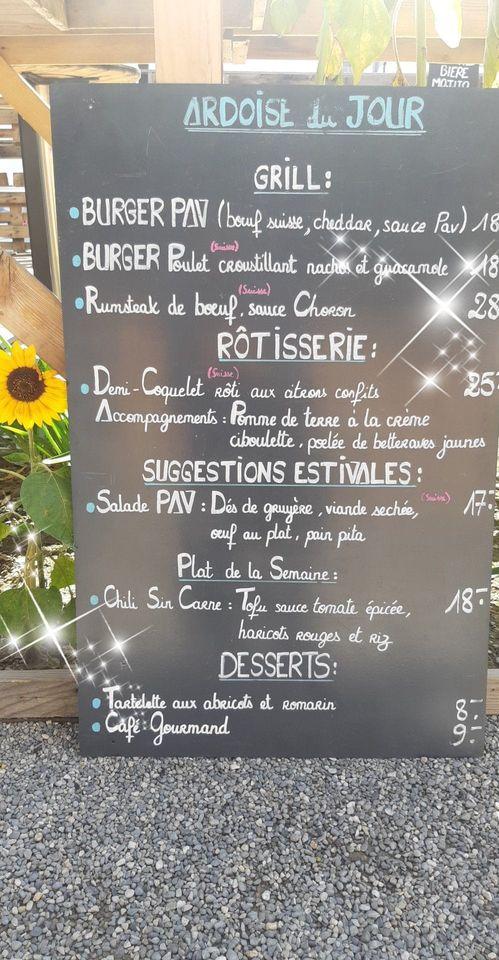 BIERE
MOJITO
ARDOISE du JOUR
GRILL:
BURGER PAV (bœuf suisse, cheddar, sauce Pav) 18
(Suisse)
BURGER Poulet croustillant nachos et guacamole 18
(Suisse)
Rumsteak de bœuf, sauce Choron 28
RÔTISSERIE:
(Suisse)
Demi-Coquelet rôti aux citrons confits 25.-
Accompagnements: Pomme de terre à la crème
ciboulette, poêlée de betteraves jaunes
SUGGESTIONS ESTIVALES:
(Suisse)
Salade PAV: Dés de gruyère, viande sechée, 17.-
œuf au plat, pain pita
Plat de la Semaine:
Chili Sin Carne: Tofu sauce tomate épicée, 18.-
haricots rouges et riz
DESSERTS:
Tartelette aux abricots et romarin 8.-
Café Gourmand 9.-